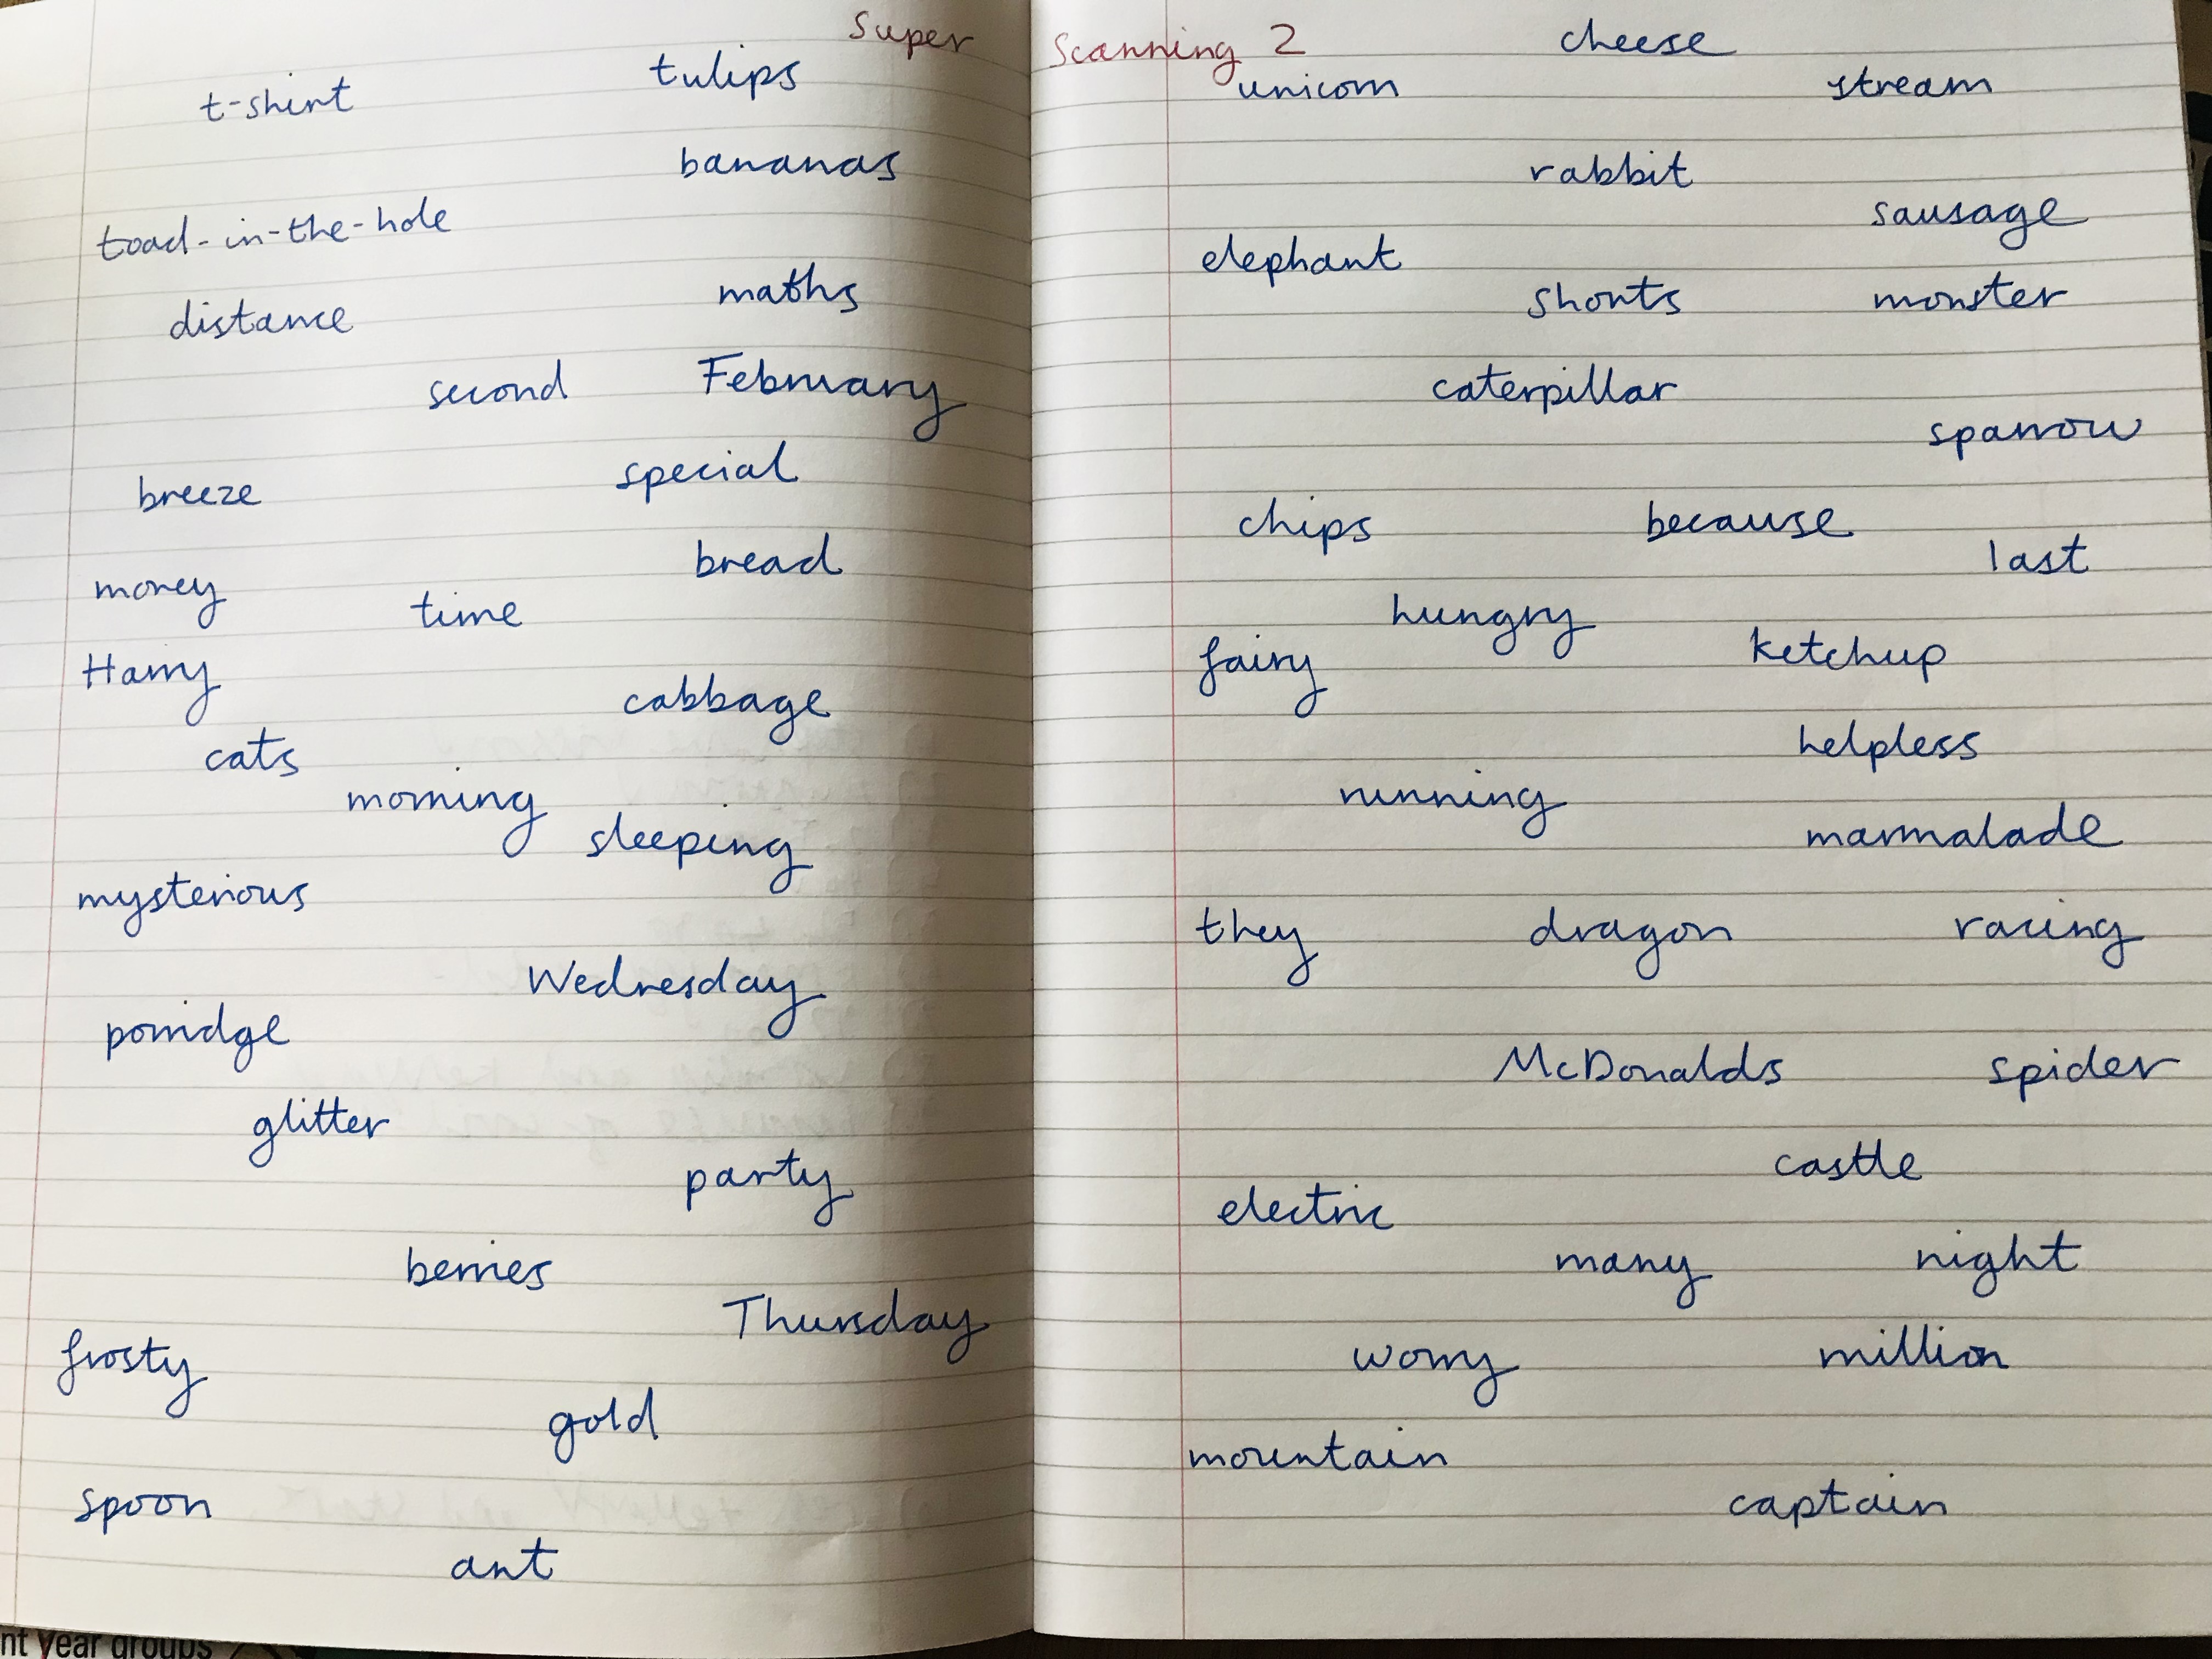 Super Scanning 2
t-shirt tulips
bananas
toad-in-the-hole
maths
distance
second February
special
breeze
bread
money time
Harry
cabbage
cats
morning
sleeping
mysterious
Wednesday
porridge
glitter
party
berries
Thursday
frosty
gold
spoon
ant
cheese
unicorn stream
rabbit
sausage
elephant
shorts monster
caterpillar
sparrow
chips because
last
hungry
fairy ketchup
helpless
running
marmalade
they dragon racing
McDonalds spider
castle
electric
many night
worry million
mountain
captain
nt year groups